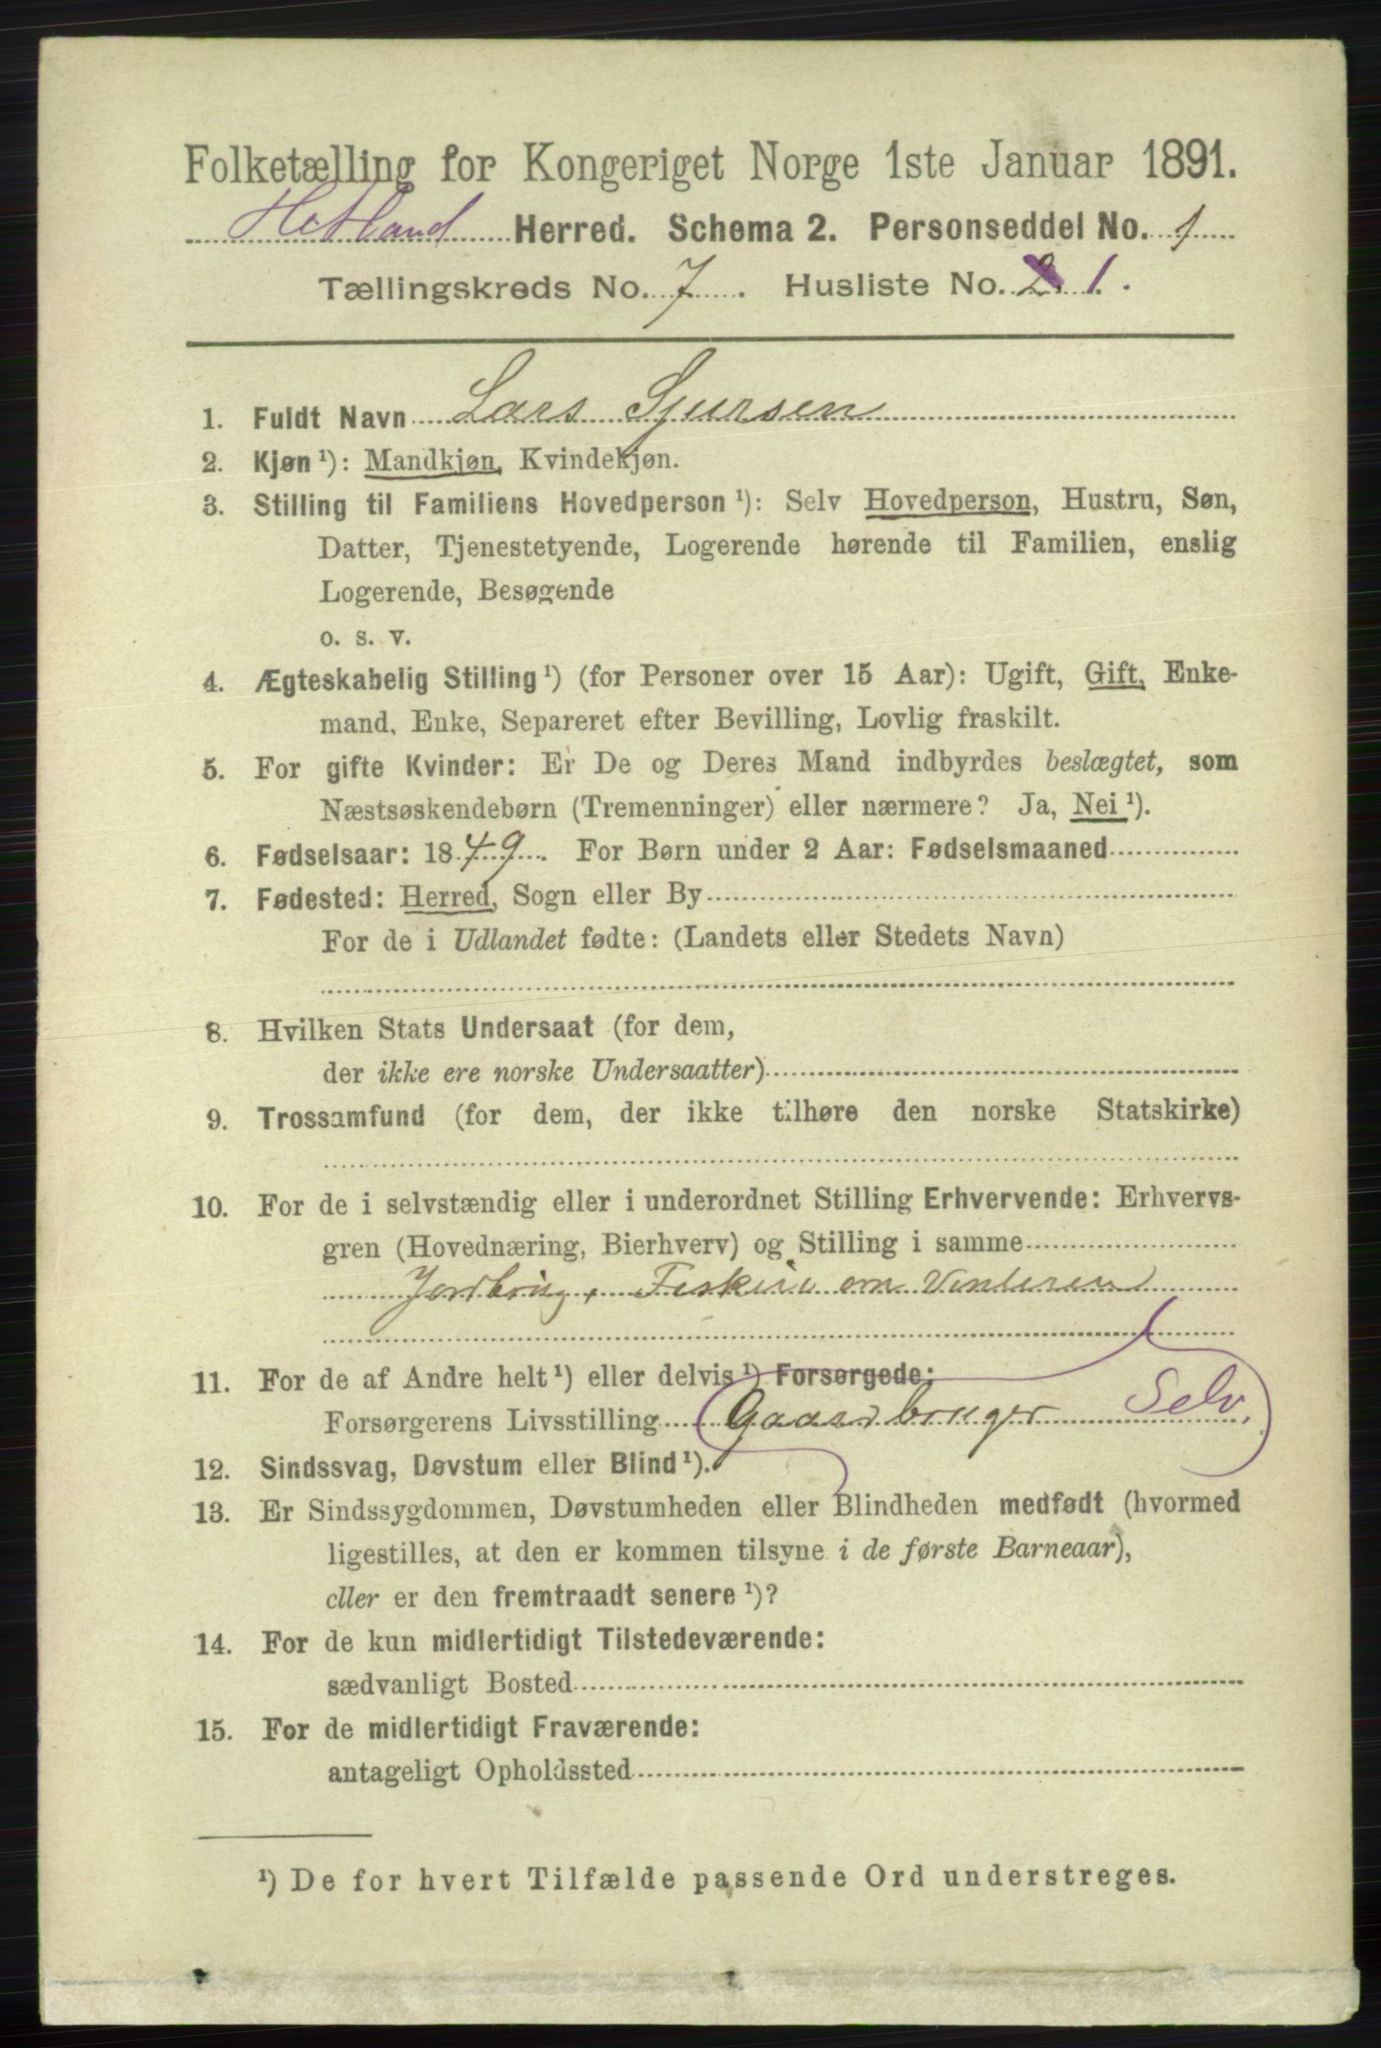 Folketælling for Kongeriget Norge 1ste Januar 1891.
Hetland Herred. Schema 2. Personseddel No. 1
Tællingskreds No. 7. Husliste No. 2 1.
1. Fuldt Navn Lars Sjursen
2. Kjøn ¹): Mandkjøn, Kvindekjøn.
3. Stilling til Familiens Hovedperson ¹): Selv Hovedperson, Hustru, Søn,
Datter, Tjenestetyende, Logerende hørende til Familien, enslig
Logerende, Besøgende
o. s. v.
4. Ægteskabelig Stilling ¹) (for Personer over 15 Aar): Ugift, Gift, Enke-
mand, Enke, Separeret efter Bevilling, Lovlig fraskilt.
5. For gifte Kvinder: Er De og Deres Mand indbyrdes beslægtet, som
Næstsøskendebørn (Tremenninger) eller nærmere? Ja, Nei ¹).
6. Fødselsaar: 1849. For Børn under 2 Aar: Fødselsmaaned
7. Fødested: Herred, Sogn eller By
For de i Udlandet fødte: (Landets eller Stedets Navn)
8. Hvilken Stats Undersaat (for dem,
der ikke ere norske Undersaatter)
9. Trossamfund (for dem, der ikke tilhøre den norske Statskirke)
10. For de i selvstændig eller i underordnet Stilling Erhvervende: Erhvervs-
gren (Hovednæring, Bierhverv) og Stilling i samme
Jordbrug, Fiskeri om Vinteren
11. For de af Andre helt ¹) eller delvis ¹) Forsørgede:
Forsørgerens Livsstilling Gaardbruger Selv.
12. Sindssvag, Døvstum eller Blind ¹).
13. Er Sindssygdommen, Døvstumheden eller Blindheden medfødt (hvormed
ligestilles, at den er kommen tilsyne i de første Barneaar),
eller er den fremtraadt senere ¹)?
14. For de kun midlertidigt Tilstedeværende:
sædvanligt Bosted
15. For de midlertidigt Fraværende:
antageligt Opholdssted
¹) De for hvert Tilfælde passende Ord understreges.